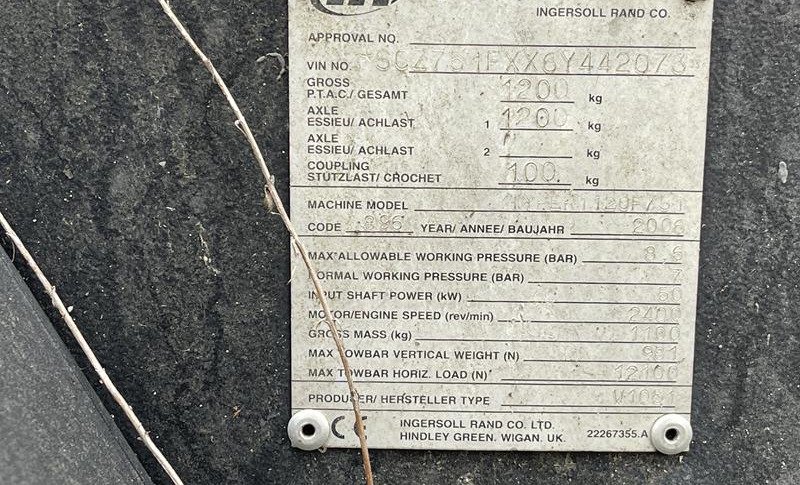 INGERSOLL RAND CO.
APPROVAL NO.
VIN NO.
GROSS
P.T.A.C./ GESAMT 1200 kg
AXLE
ESSIEU/ ACHLAST 1 1200 kg
AXLE
ESSIEU/ ACHLAST 2 kg
COUPLING
STÜTZLAST/ CROCHET 100 kg
MACHINE MODEL
CODE YEAR/ ANNEE/ BAUJAHR 2006
MAX ALLOWABLE WORKING PRESSURE (BAR) 8.6
NORMAL WORKING PRESSURE (BAR) 7
INPUT SHAFT POWER (kW) 60
MOTOR/ENGINE SPEED (rev/min) 2400
GROSS MASS (kg)
MAX TOWBAR VERTICAL WEIGHT (N) 981
MAX TOWBAR HORIZ. LOAD (N) 12100
PRODUCER/ HERSTELLER TYPE
CE INGERSOLL RAND CO. LTD.
HINDLEY GREEN, WIGAN. UK. 22267355.A